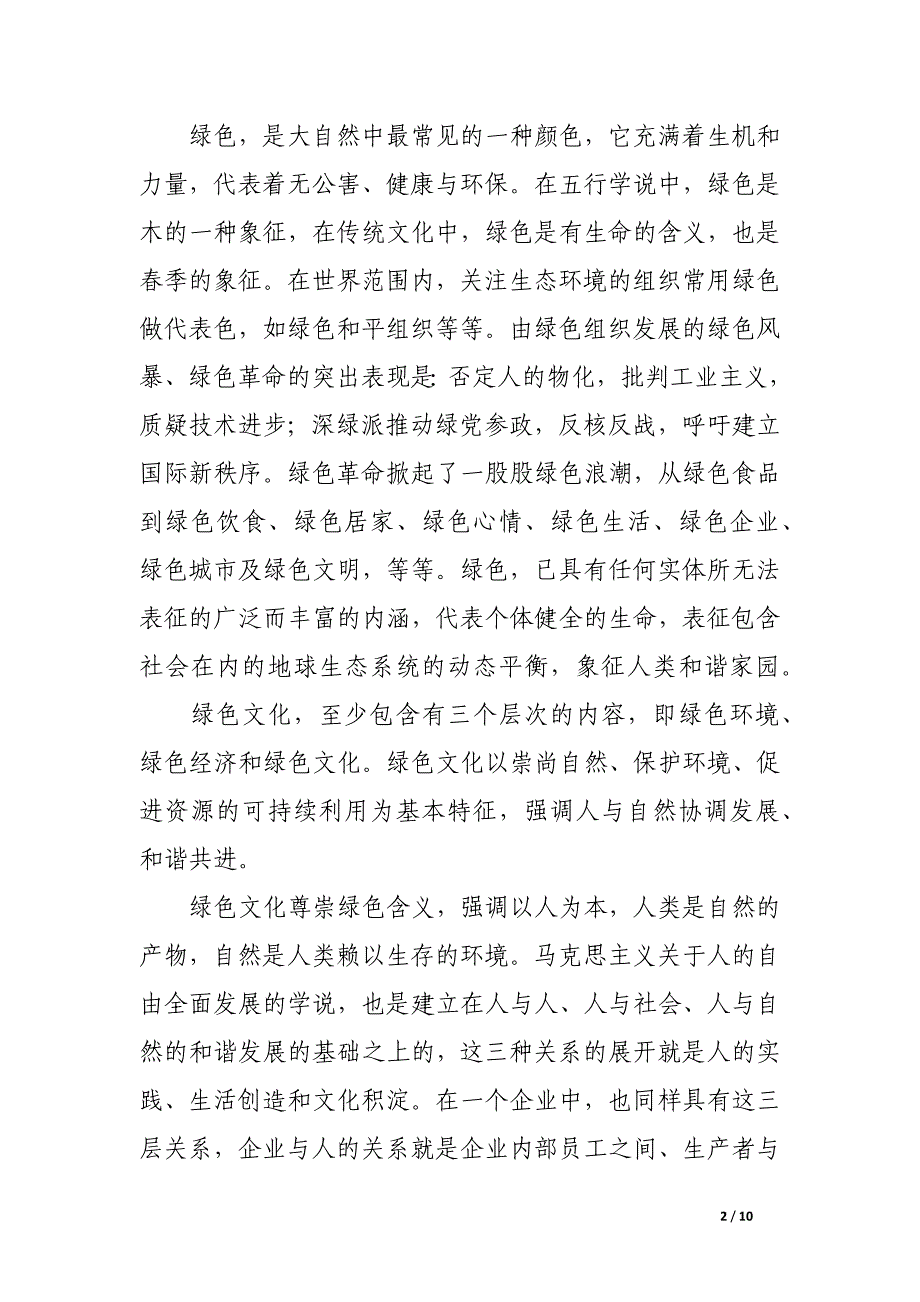 绿色，是大自然中最常见的一种颜色，它充满着生机和
力量，代表着无公害、健康与环保。在五行学说中，绿色是
木的一种象征，在传统文化中，绿色是有生命的含义，也是
春季的象征。在世界范围内，关注生态环境的组织常用绿色
做代表色，如绿色和平组织等等。由绿色组织发展的绿色风
暴、绿色革命的突出表现是：否定人的物化，批判工业主义，
质疑技术进步；深绿派推动绿党参政，反核反战，呼吁建立
国际新秩序。绿色革命掀起了一股股绿色浪潮，从绿色食品
到绿色饮食、绿色居家、绿色心情、绿色生活、绿色企业、
绿色城市及绿色文明，等等。绿色，已具有任何实体所无法
表征的广泛而丰富的内涵，代表个体健全的生命，表征包含
社会在内的地球生态系统的动态平衡，象征人类和谐家园。
绿色文化，至少包含有三个层次的内容，即绿色环境、
绿色经济和绿色文化。绿色文化以崇尚自然、保护环境、促
进资源的可持续利用为基本特征，强调人与自然协调发展、
和谐共进。
绿色文化尊崇绿色含义，强调以人为本，人类是自然的
产物，自然是人类赖以生存的环境。马克思主义关于人的自
由全面发展的学说，也是建立在人与人、人与社会、人与自
然的和谐发展的基础之上的，这三种关系的展开就是人的实
践、生活创造和文化积淀。在一个企业中，也同样具有这三
层关系，企业与人的关系就是企业内部员工之间、生产者与
2 / 10